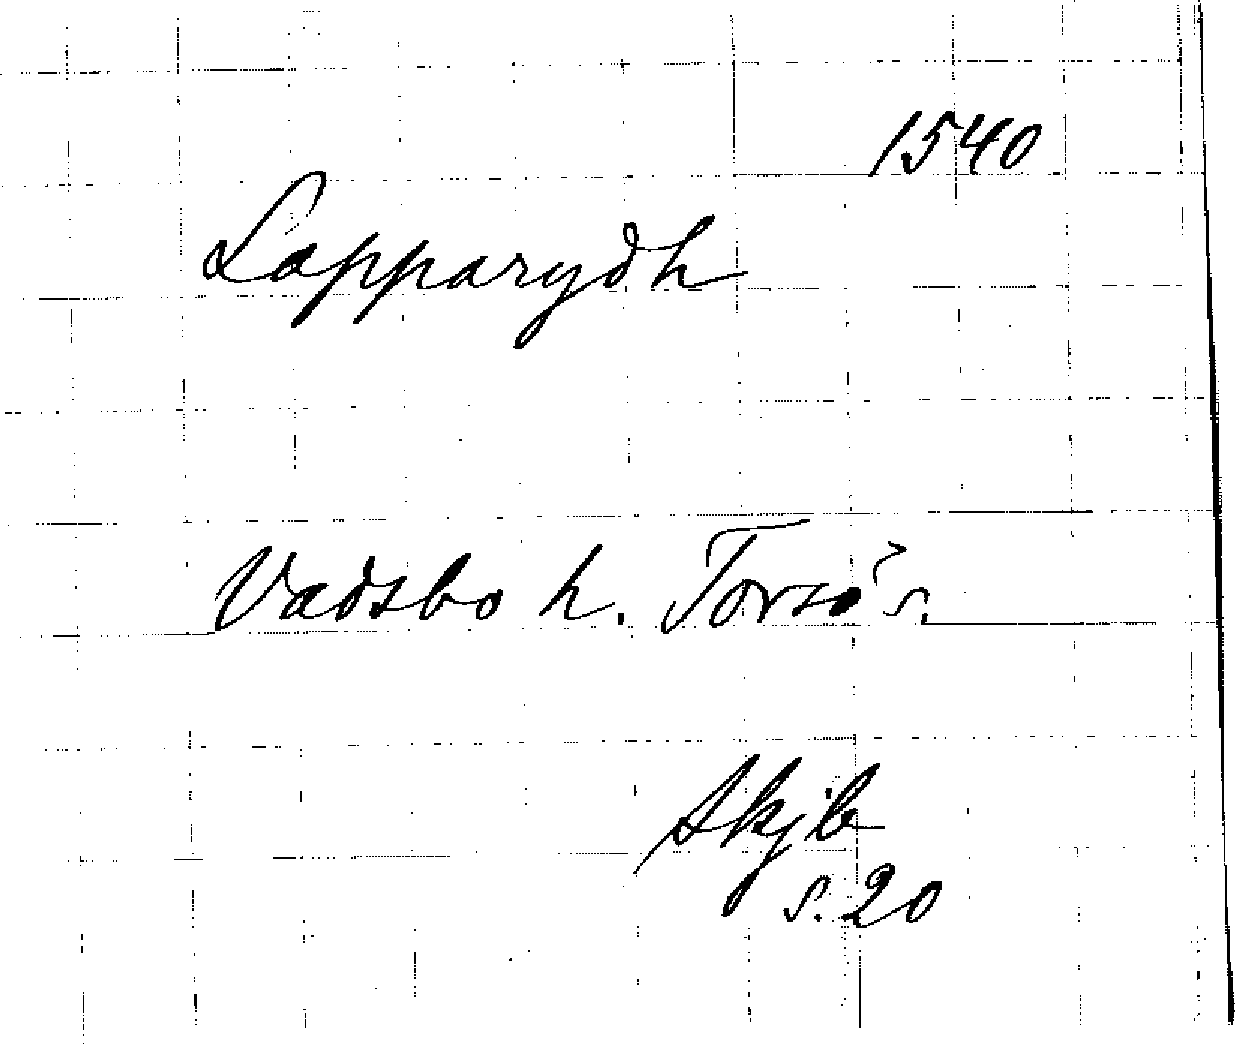 1540
Lapparydh
Vadsbo h. Torsö s.
Skjb
s. 20